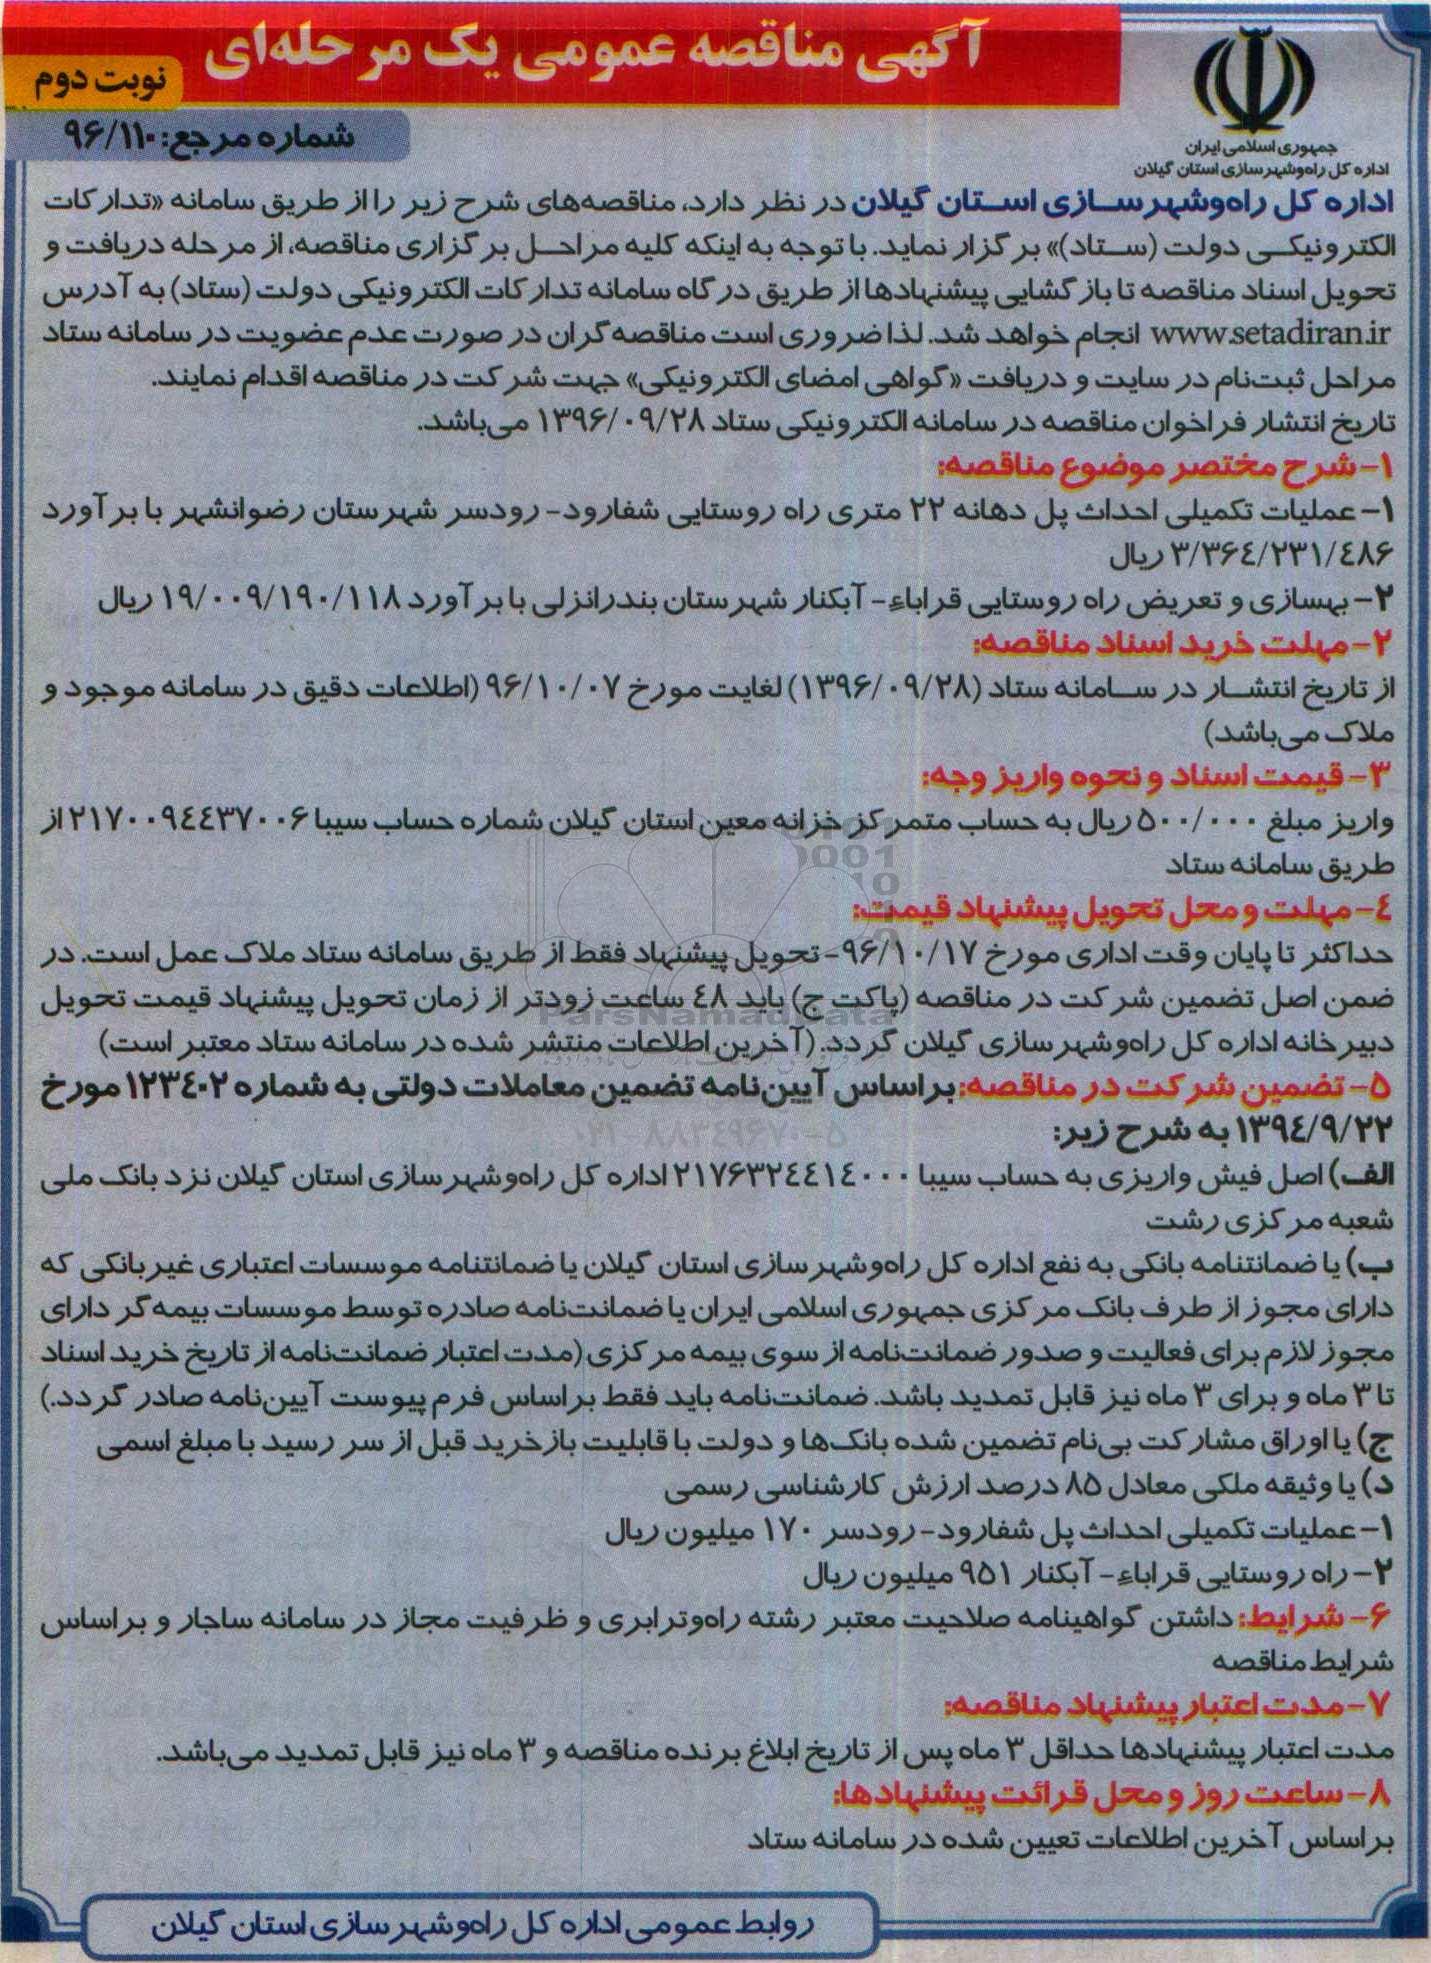 آگهی مناقصه عمومی یک مرحله‌ای
نوبت دوم
شماره مرجع: ۹۶/۱۱۰
جمهوری اسلامی ایران
اداره کل راه‌وشهرسازی استان گیلان
اداره کل راه‌وشهرسازی استان گیلان در نظر دارد، مناقصه‌های شرح زیر را از طریق سامانه «تدارکات
الکترونیکی دولت (ستاد)» برگزار نماید. با توجه به اینکه کلیه مراحل برگزاری مناقصه، از مرحله دریافت و
تحویل اسناد مناقصه تا بازگشایی پیشنهادها از طریق درگاه سامانه تدارکات الکترونیکی دولت (ستاد) به آدرس
www.setadiran.ir انجام خواهد شد. لذا ضروری است مناقصه‌گران در صورت عدم عضویت در سامانه ستاد
مراحل ثبت‌نام در سایت و دریافت «گواهی امضای الکترونیکی» جهت شرکت در مناقصه اقدام نمایند.
تاریخ انتشار فراخوان مناقصه در سامانه الکترونیکی ستاد ۱۳۹۶/۰۹/۲۸ می‌باشد.
۱- شرح مختصر موضوع مناقصه:
۱- عملیات تکمیلی احداث پل دهانه ۲۲ متری راه روستایی شفارود- رودسر شهرستان رضوانشهر با برآورد
۳/۳۶۴/۲۳۱/۴۸۶ ریال
۲- بهسازی و تعریض راه روستایی قراباء- آبکنار شهرستان بندرانزلی با برآورد ۱۹/۰۰۹/۱۹۰/۱۱۸ ریال
۲- مهلت خرید اسناد مناقصه:
از تاریخ انتشار در سامانه ستاد (۱۳۹۶/۰۹/۲۸) لغایت مورخ ۹۶/۱۰/۰۷ (اطلاعات دقیق در سامانه موجود و
ملاک می‌باشد)
۳- قیمت اسناد و نحوه واریز وجه:
واریز مبلغ ۵۰۰/۰۰۰ ریال به حساب متمرکز خزانه معین استان گیلان شماره حساب سیبا ۲۱۷۰۰۹۴۴۳۷۰۰۶ از
طریق سامانه ستاد
۴- مهلت و محل تحویل پیشنهاد قیمت:
حداکثر تا پایان وقت اداری مورخ ۹۶/۱۰/۱۷- تحویل پیشنهاد فقط از طریق سامانه ستاد ملاک عمل است. در
ضمن اصل تضمین شرکت در مناقصه (پاکت ج) باید ۴۸ ساعت زودتر از زمان تحویل پیشنهاد قیمت تحویل
دبیرخانه اداره کل راه‌وشهرسازی گیلان گردد. (آخرین اطلاعات منتشر شده در سامانه ستاد معتبر است)
ParsNamadData
۵- تضمین شرکت در مناقصه: براساس آیین‌نامه تضمین معاملات دولتی به شماره ۱۲۳۴۰۲ مورخ
۱۳۹۴/۹/۲۲ به شرح زیر:
۰۲۱-۸۸۳۴۹۶۷۰-۵
الف) اصل فیش واریزی به حساب سیبا ۲۱۷۶۳۲۴۴۱۴۰۰۰ اداره کل راه‌وشهرسازی استان گیلان نزد بانک ملی
شعبه مرکزی رشت
ب) یا ضمانتنامه بانکی به نفع اداره کل راه‌وشهرسازی استان گیلان یا ضمانتنامه موسسات اعتباری غیربانکی که
دارای مجوز از طرف بانک مرکزی جمهوری اسلامی ایران یا ضمانت‌نامه صادره توسط موسسات بیمه‌گر دارای
مجوز لازم برای فعالیت و صدور ضمانت‌نامه از سوی بیمه مرکزی (مدت اعتبار ضمانت‌نامه از تاریخ خرید اسناد
تا ۳ ماه و برای ۳ ماه نیز قابل تمدید باشد. ضمانت‌نامه باید فقط براساس فرم پیوست آیین‌نامه صادر گردد.)
ج) یا اوراق مشارکت بی‌نام تضمین شده بانک‌ها و دولت با قابلیت بازخرید قبل از سر رسید با مبلغ اسمی
د) یا وثیقه ملکی معادل ۸۵ درصد ارزش کارشناسی رسمی
۱- عملیات تکمیلی احداث پل شفارود- رودسر ۱۷۰ میلیون ریال
۲- راه روستایی قراباء- آبکنار ۹۵۱ میلیون ریال
۶- شرایط: داشتن گواهینامه صلاحیت معتبر رشته راه‌وترابری و ظرفیت مجاز در سامانه ساجار و براساس
شرایط مناقصه
۷- مدت اعتبار پیشنهاد مناقصه:
مدت اعتبار پیشنهادها حداقل ۳ ماه پس از تاریخ ابلاغ برنده مناقصه و ۳ ماه نیز قابل تمدید می‌باشد.
۸- ساعت روز و محل قرائت پیشنهادها:
براساس آخرین اطلاعات تعیین شده در سامانه ستاد
روابط عمومی اداره کل راه‌وشهرسازی استان گیلان